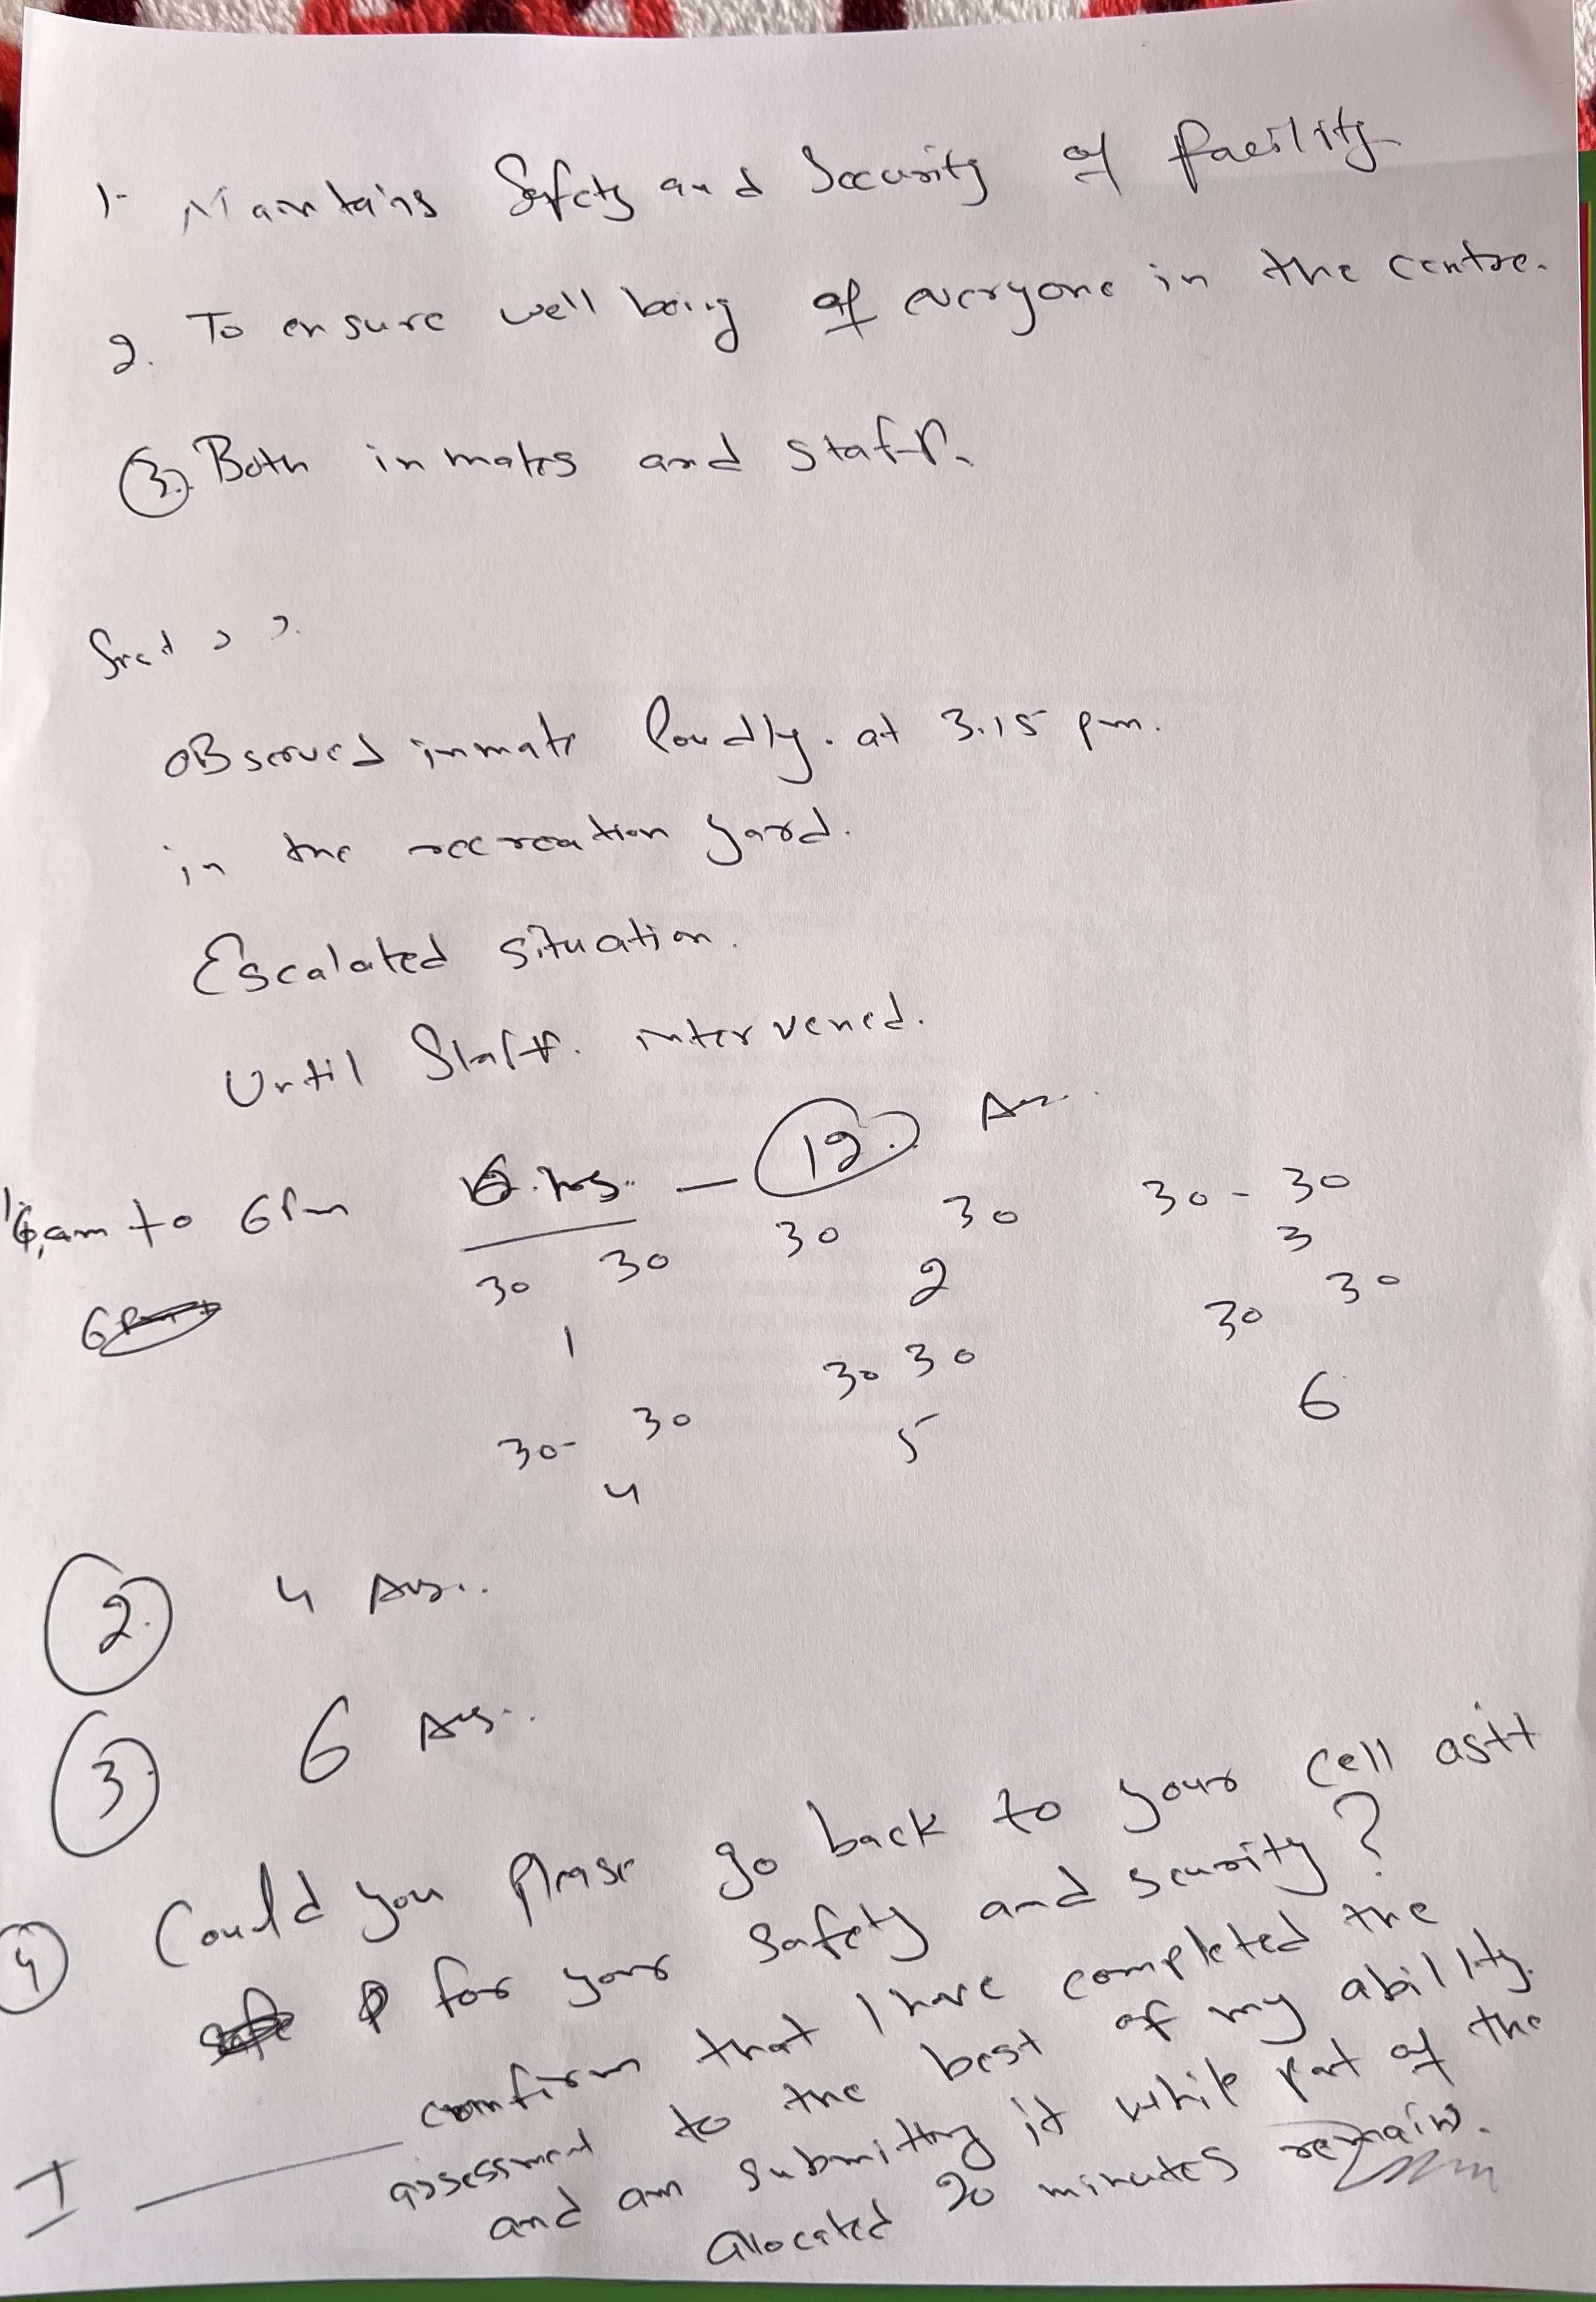 1- Maintains Safety and Security of facility
2. To ensure well being of everyone in the centre.
3. Both inmates and staff.
Observed inmate loudly. at 3.15 pm.
in the recreation yard.
Escalated situation.
Until Staff. intervened.
6 am to 6 Pm 6. hrs. — 12. An.
30 30 30 30 30 - 30
1 2 3
30- 30 30 30 30 30
4 5 6
2. 4 Ans..
3. 6 Ans..
4 Could you please go back to your cell as it
for your safety and security?
I ______ confirm that I have completed the
assessment to the best of my ability.
and am submitting it while part of the
allocated 20 minutes remain.